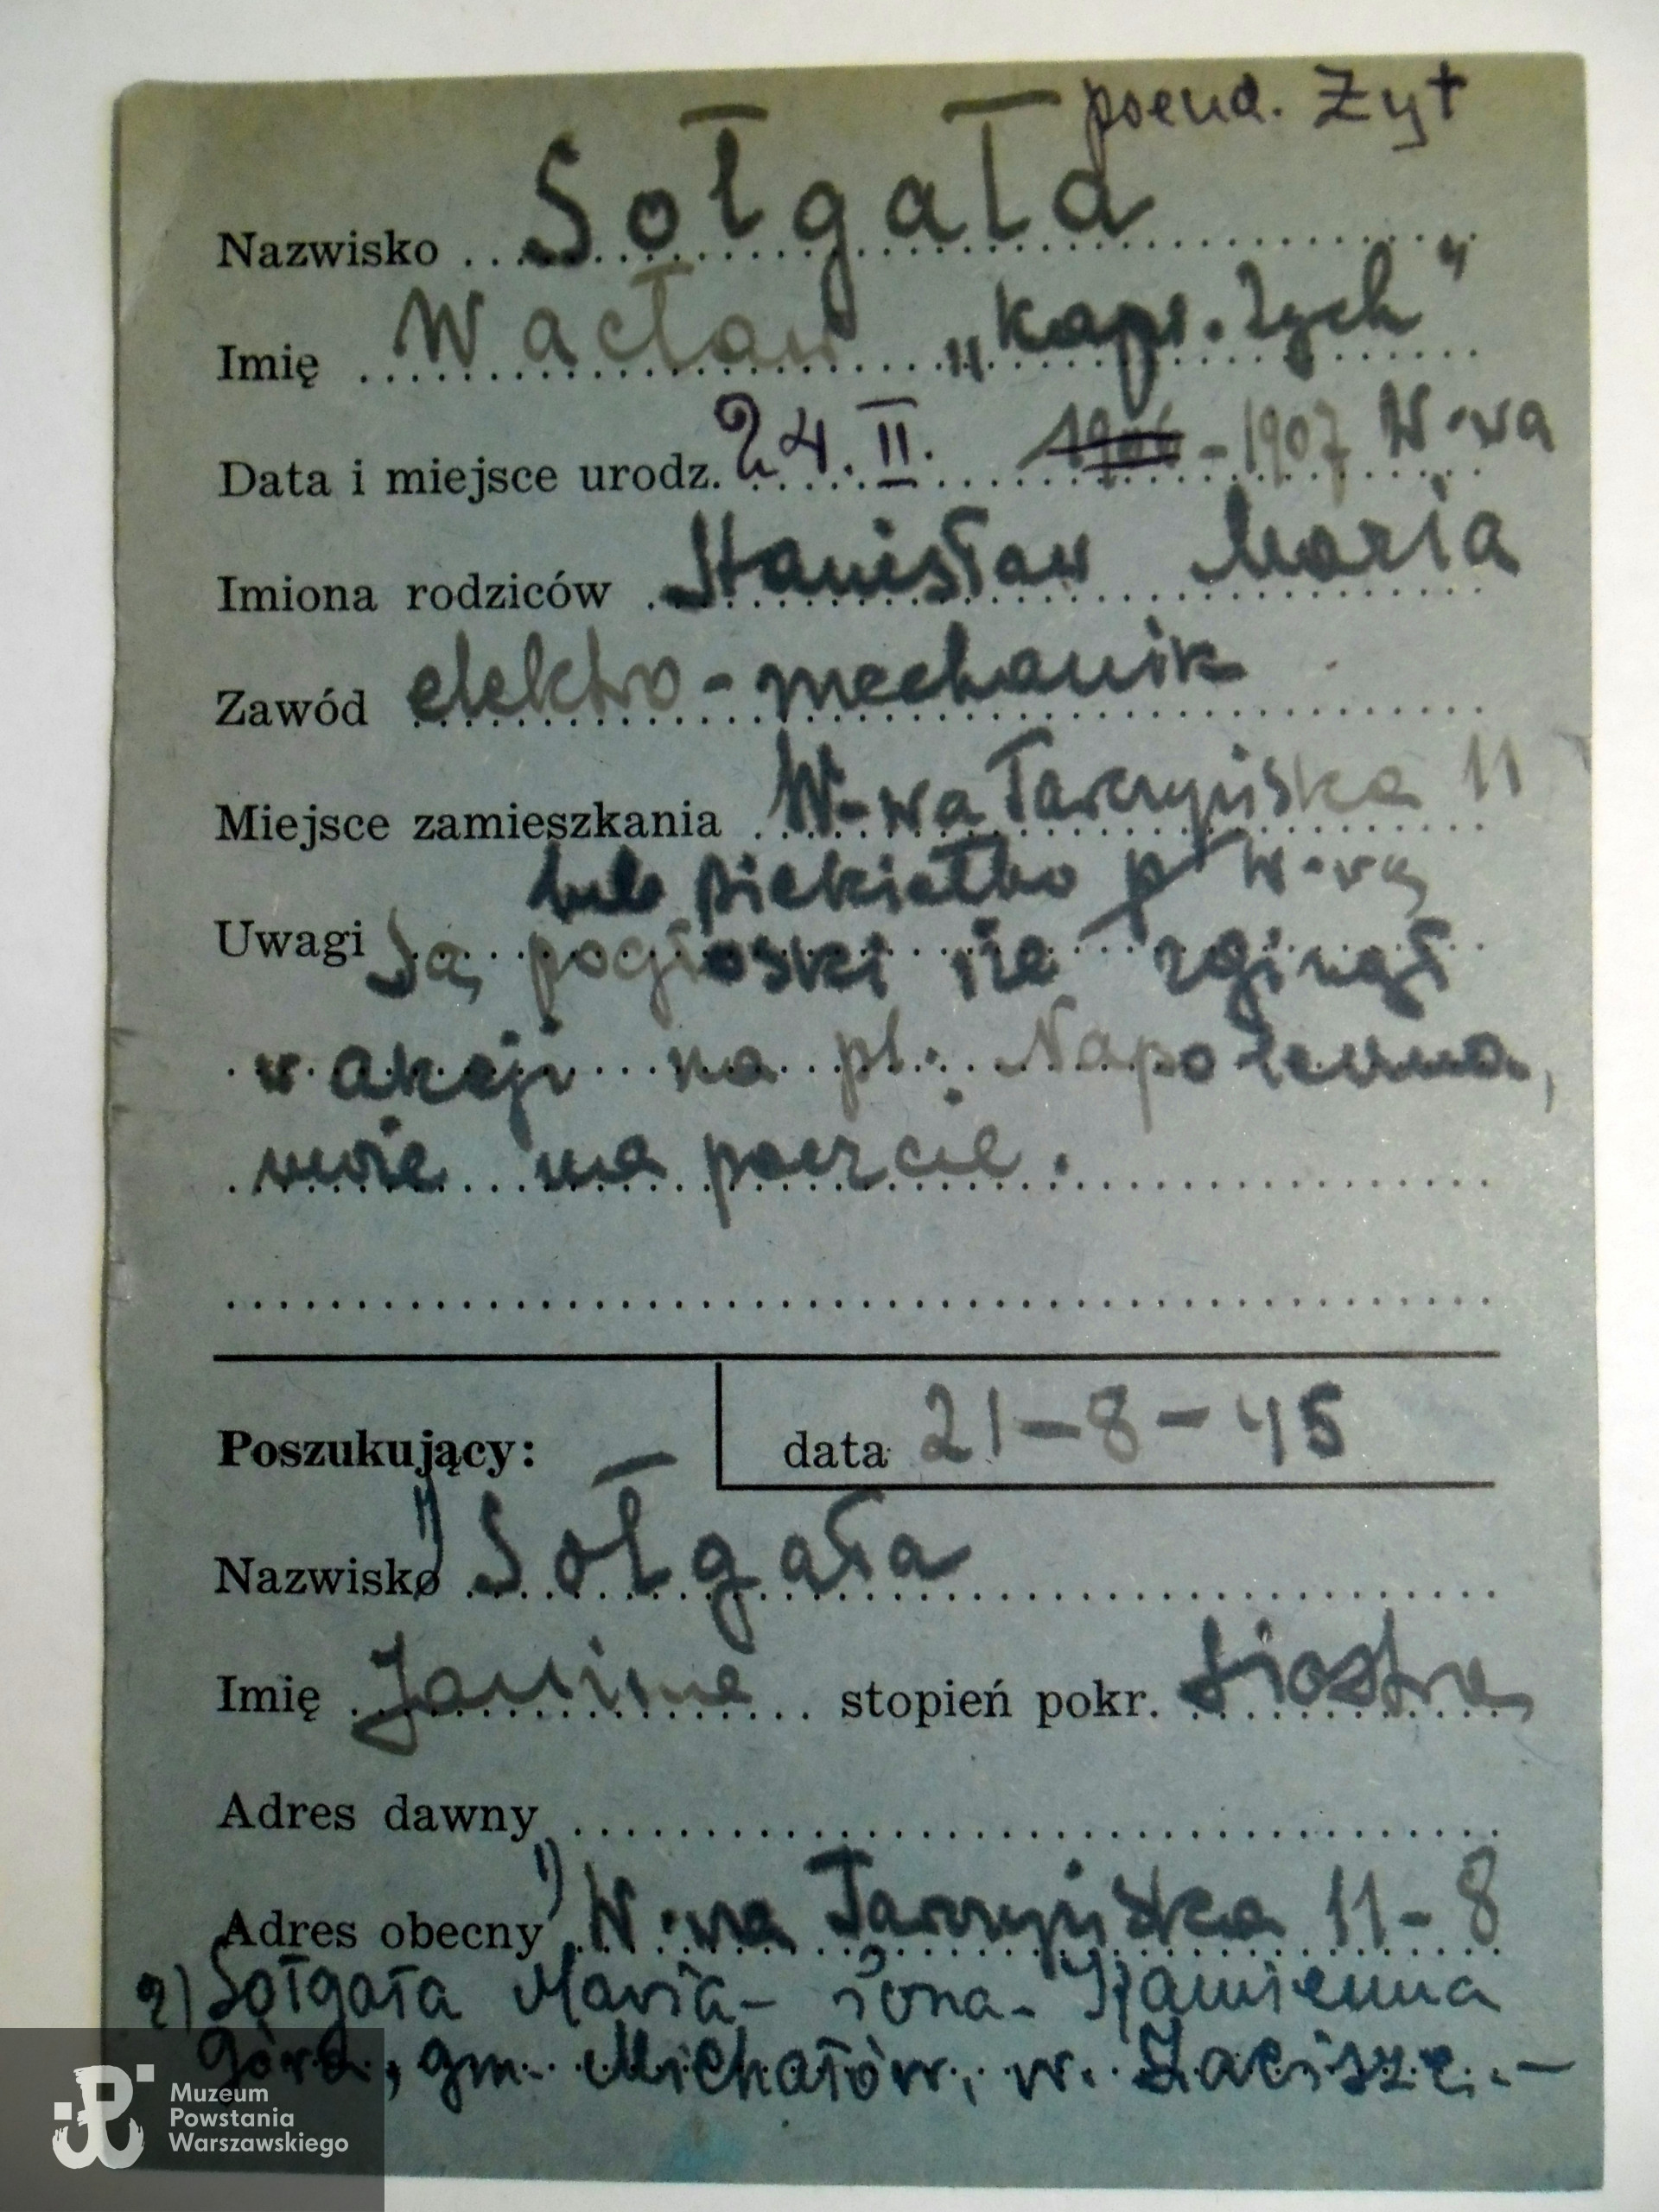 pseud. Żyt
Nazwisko Sołgała
Imię Wacław „kapr. Zych"
Data i miejsce urodz. 24. II. 1906 - 1907 W-wa
Imiona rodziców Stanisław Maria
Zawód elektro-mechanik
Miejsce zamieszkania W-wa Tarczyńska 11
lub Piekiełko p W-wą
Uwagi Są pogłoski że zginął
w akcji na pl. Napoleona,
na poczcie.
Poszukujący: data 21-8-45
Nazwisko 1) Sołgała
Imię Janina stopień pokr. siostra
Adres dawny
Adres obecny 1) W-wa Tarczyńska 11-8
2) Sołgała Maria - żona - Kamienna
Góra, gm. Michałów, w. Zacisze. -
Muzeum
Powstania
Warszawskiego